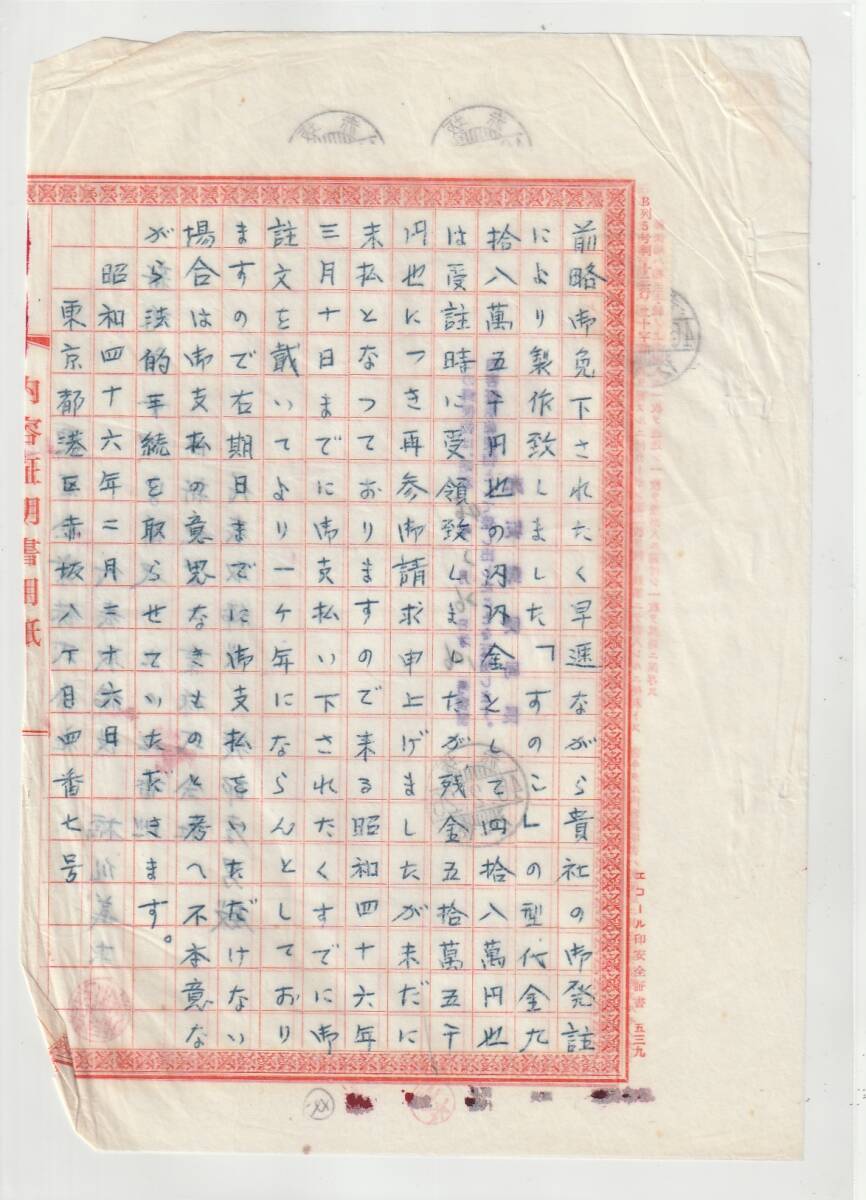 前略御免下されたく早速ながら貴社の御発註
により製作致しました「すのこ」の型代金九
拾八萬五千円也の内内金として四拾八萬円也
は受註時に受領致しましたが残金五拾萬五千
円也につき再参御請求申上げましたが未だに
未払となつておりますので来る昭和四十六年
三月十日までに御支払い下されたくすでに御
註文を戴いてより一ケ年にならんとしており
ますので右期日までに御支払をいただけない
場合は御支払の意思なきものと考へ不本意な
がら法的手続を取らせていただきます。
昭和四十六年二月二十六日
東京都港区赤坂八丁目四番七号
内容証明書用紙
エコール印安全証書 五三九